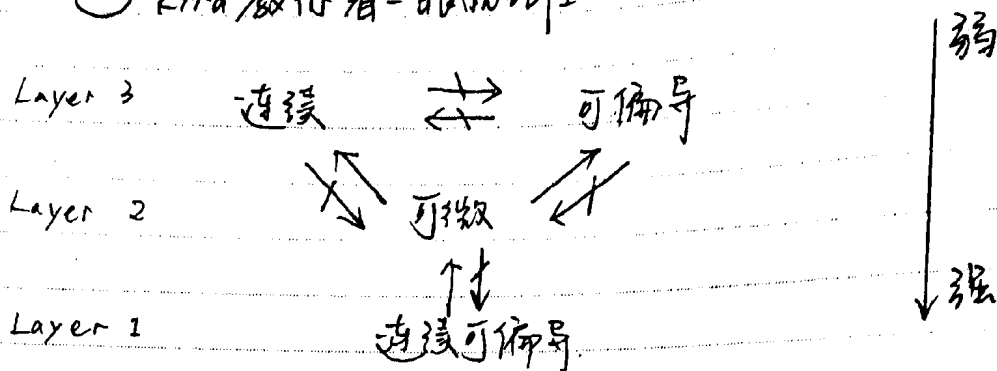 弱
Layer 3 连续 可偏导
Layer 2 可微
强
Layer 1 连续可偏导.